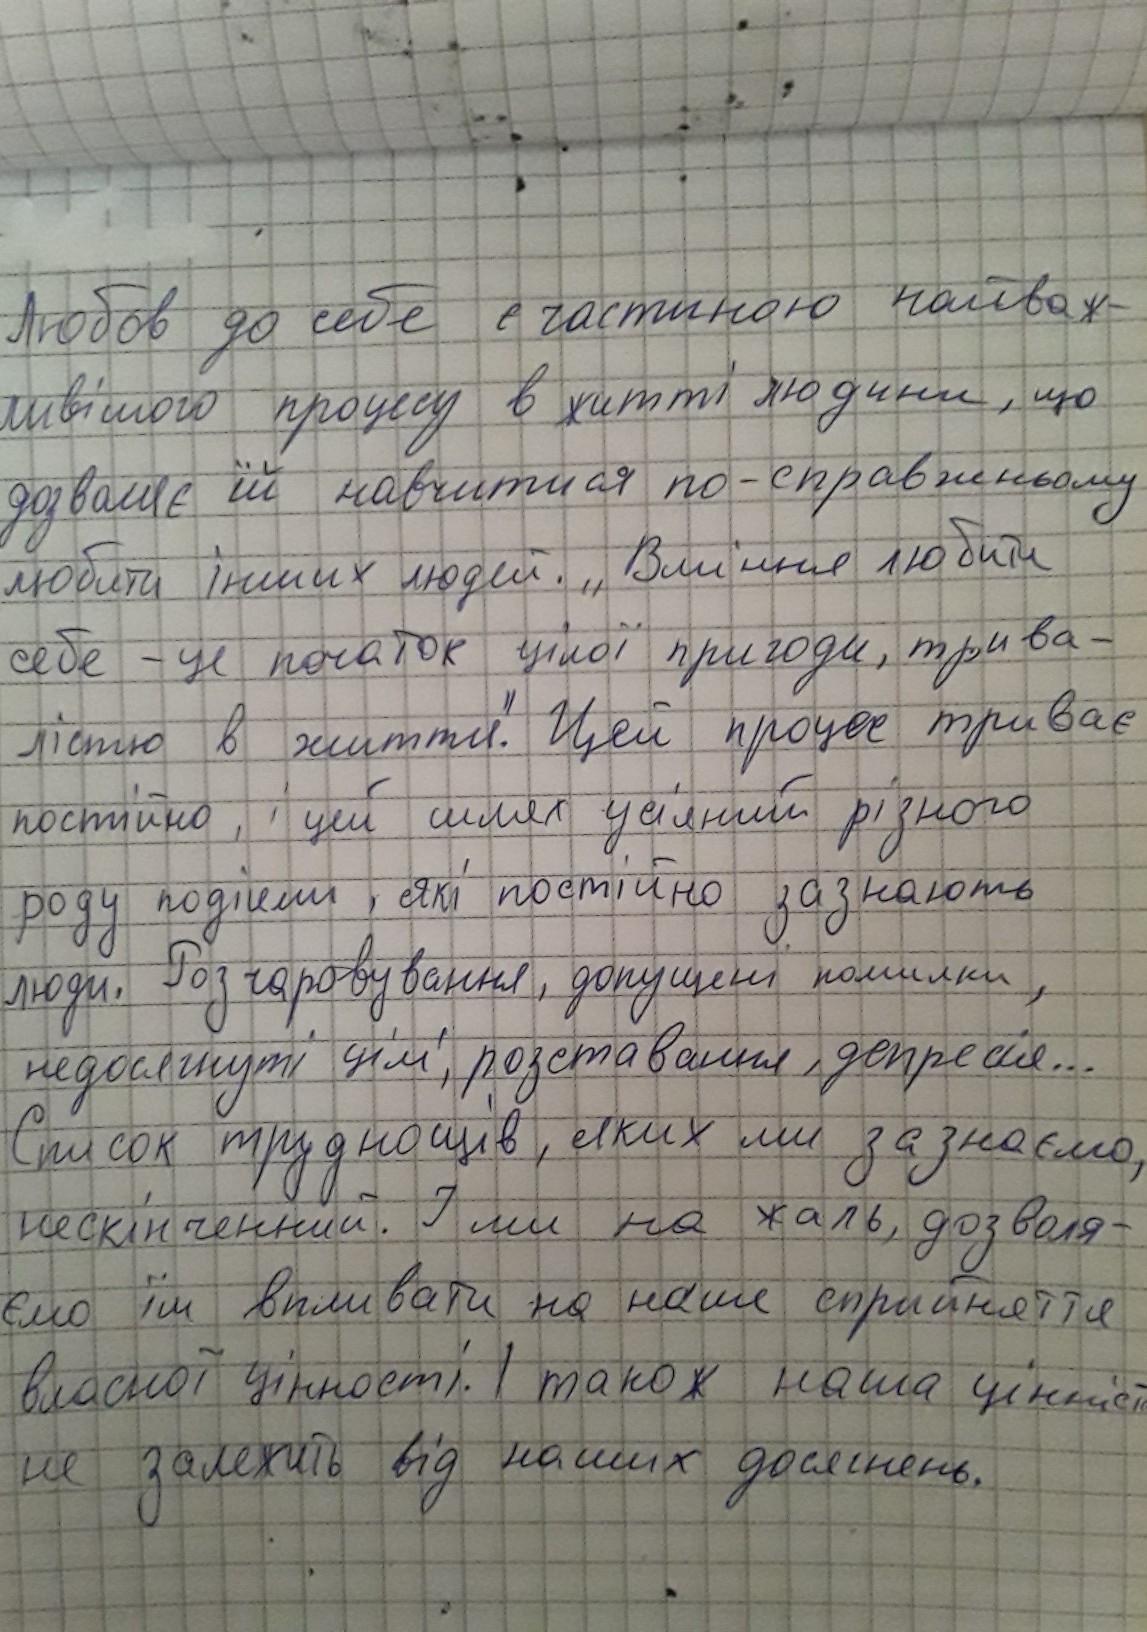 Любов до себе є частиною найваж-
ливішого процесу в житті людини, що
дозволяє їй навчитися по-справжньому
любити інших людей. „Вміння любити
себе - це початок цілої пригоди, трива-
лістю в життя". Цей процес триває
постійно, і цей шлях усіяний різного
роду подіями, які постійно зазнають
люди. Розчаровування, допущені помилки,
недосягнуті цілі, розставання, депресія...
Список труднощів, яких ми зазнаємо,
нескінченний. І ми на жаль, дозволя-
ємо їм впливати на наше сприйняття
власної цінності. І також наша цінність
не залежить від наших досягнень.